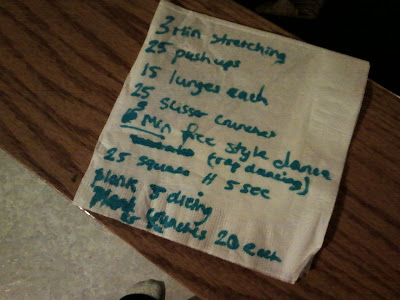 3 Min stretching
25 push ups
15 lunges each
25 susser crunches
5 Min free style dance
(rap dancing)
25 squares 11 5 sec
plank
plank crunches 20 each